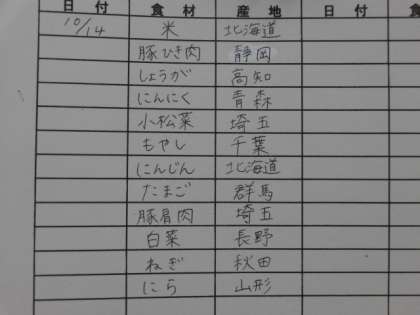 日付 食材 産地 日付 食
10/14 米 北海道
豚ひき肉 静岡
しょうが 高知
にんにく 青森
小松菜 埼玉
もやし 千葉
にんじん 北海道
たまご 群馬
豚肩肉 埼玉
白菜 長野
ねぎ 秋田
にら 山形